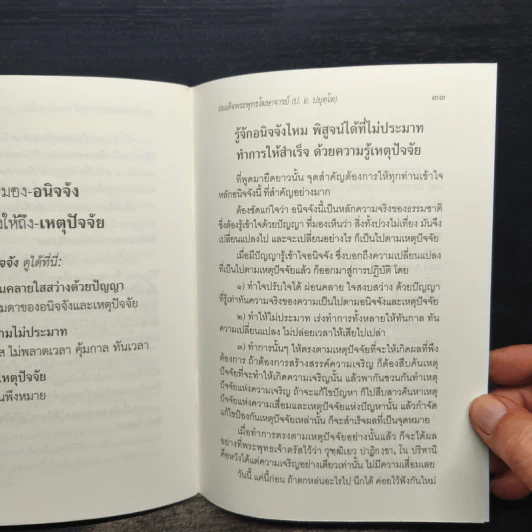 มอง-อนิจจัง
ให้ถึง-เหตุปัจจัย
จัง ดูได้ที่นี่:
นคลายใสสว่างด้วยปัญญา
มดาของอนิจจังและเหตุปัจจัย
ามไม่ประมาท
ส ไม่พลาดเวลา คุ้มกาล ทันเวลา
เหตุปัจจัย
นพึงหมาย
สมเด็จพระพุทธโฆษาจารย์ (ป. อ. ปยุตฺโต)
๓๓
รู้จักอนิจจังไหม พิสูจน์ได้ที่ไม่ประมาท
ทำการให้สำเร็จ ด้วยความรู้เหตุปัจจัย
ที่พูดมายืดยาวนั้น จุดสำคัญต้องการให้ทุกท่านเข้าใจ
หลักอนิจจังนี้ ที่สำคัญอย่างมาก
ต้องชัดแก่ใจว่า อนิจจังเป็นหลักความจริงของธรรมชาติ
ซึ่งต้องรู้เข้าใจด้วยปัญญา ที่มองเห็นว่า สิ่งทั้งปวงไม่เที่ยง มันจึง
เปลี่ยนแปลงไป และจะเปลี่ยนอย่างไร ก็เป็นไปตามเหตุปัจจัย
เมื่อมีปัญญารู้เข้าใจอนิจจัง ซึ่งบอกถึงความเปลี่ยนแปลง
ที่เป็นไปตามเหตุปัจจัยแล้ว ก็ออกมาสู่การปฏิบัติ โดย
๑) ทำใจปรับใจได้ ผ่อนคลาย ใจสงบสว่าง ด้วยปัญญา
ที่รู้เท่าทันความจริงของความเป็นไปตามอนิจจังและเหตุปัจจัย
๒) ทำให้ไม่ประมาท เร่งทำการทั้งหลายให้ทันกาล ทัน
ความเปลี่ยนแปลง ไม่ปล่อยเวลาให้เสียไปเปล่า
๓) ทำการนั้นๆ ให้ตรงตามเหตุปัจจัยที่จะให้เกิดผลที่พึง
ต้องการ ถ้าต้องการสร้างสรรค์ความเจริญ ก็ต้องสืบค้นเหตุ
ปัจจัยที่จะทำให้เกิดความเจริญนั้น แล้วพากันชวนกันทำเหตุ
ปัจจัยแห่งความเจริญ ถ้าจะแก้ไขปัญหา ก็ไปสืบสาวค้นหาเหตุ
ปัจจัยแห่งความเสื่อมและเหตุปัจจัยแห่งปัญหานั้น แล้วกำจัด
แก้ไขป้องกันเหตุปัจจัยเหล่านั้น ก็จะสำเร็จผลที่เป็นจุดหมาย
เมื่อทำการตรงตามเหตุปัจจัยอย่างนั้นแล้ว ก็จะได้ผล
อย่างที่พระพุทธเจ้าตรัสไว้ว่า วุฑฺฒิเยว ปาฏิกงฺขา, โน ปริหานิ
คือหวังได้แต่ความเจริญอย่างเดียวเท่านั้น ไม่มีความเสื่อมเลย
วันนี้ แค่นี้ก่อน ถ้าตกหล่นอะไรไป นึกได้ ค่อยไว้ฟังกันใหม่